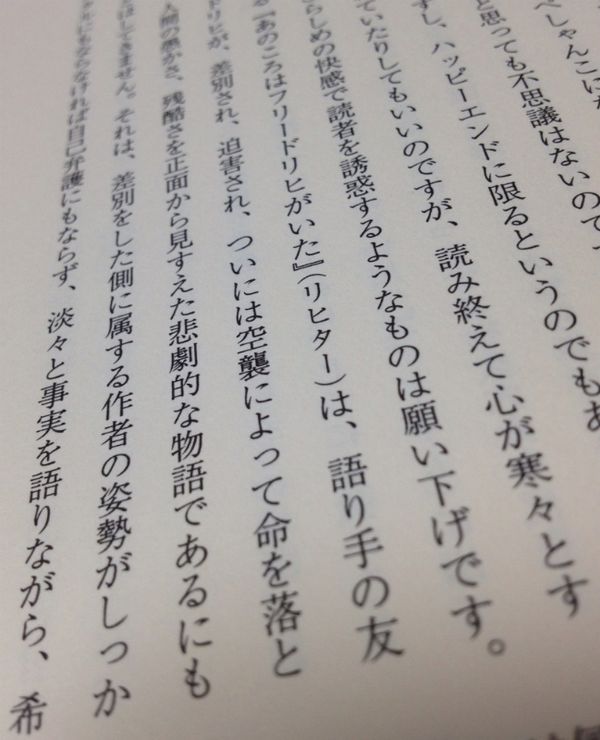 ぺしゃんこにな
と思っても不思議はないので
すし、ハッピーエンドに限るというのでもあ
ていたりしてもいいのですが、読み終えて心が寒々とす
らしめの快感で読者を誘惑するようなものは願い下げです。
る『あのころはフリードリヒがいた』(リヒター)は、語り手の友
ドリヒが、差別され、迫害され、ついには空襲によって命を落と
人間の愚かさ、残酷さを正面から見すえた悲劇的な物語であるにも
はしてきません。それは、差別をした側に属する作者の姿勢がしっか
にもならなければ自己弁護にもならず、淡々と事実を語りながら、希